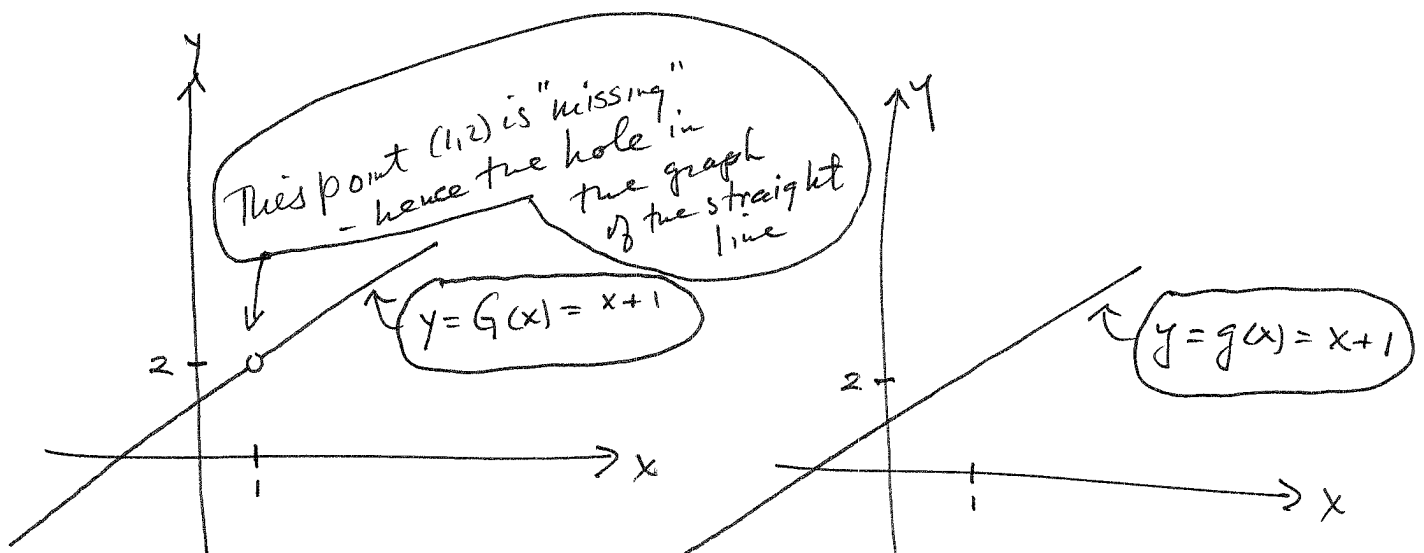 y
This point (1,2) is "missing"
- hence the hole in
the graph
of the straight
line
y = G(x) = x+1
2
1
x
y
y = g(x) = x+1
2
1
x